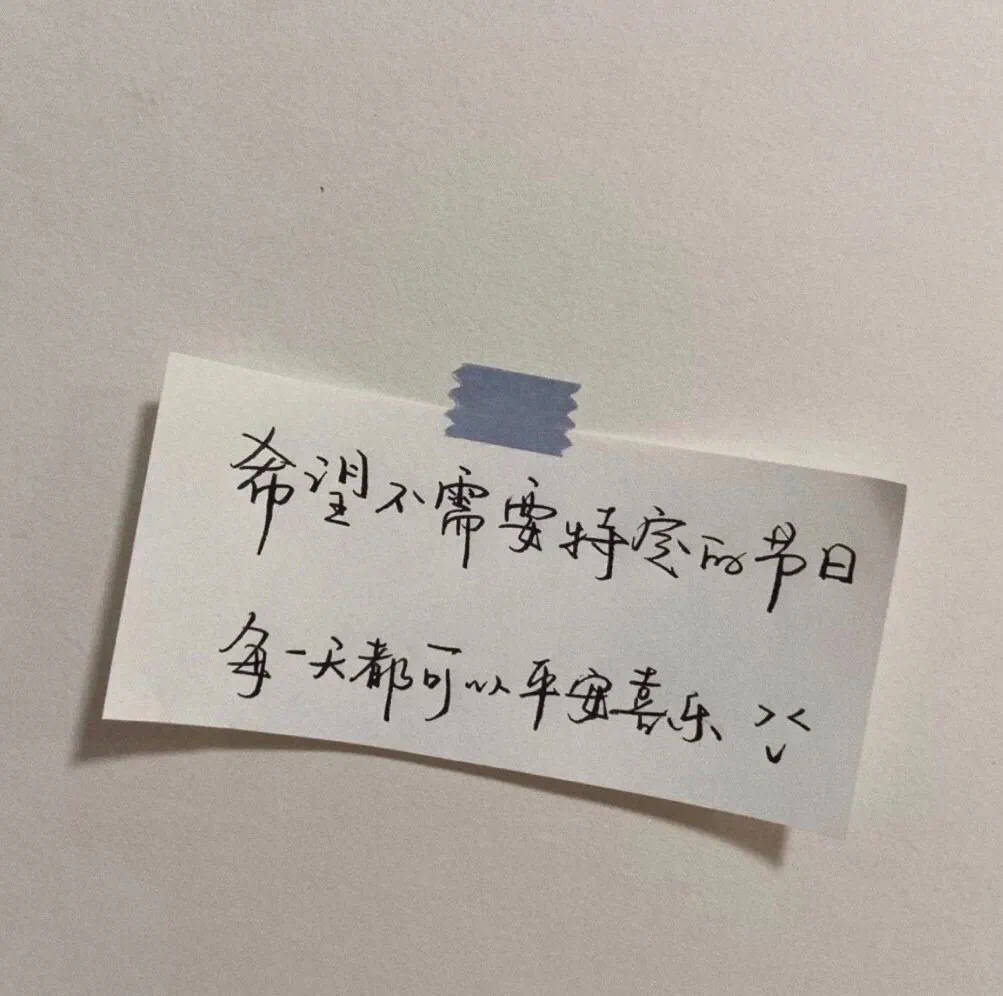 希望不需要特定的节日
每一天都可以平安喜乐 ><